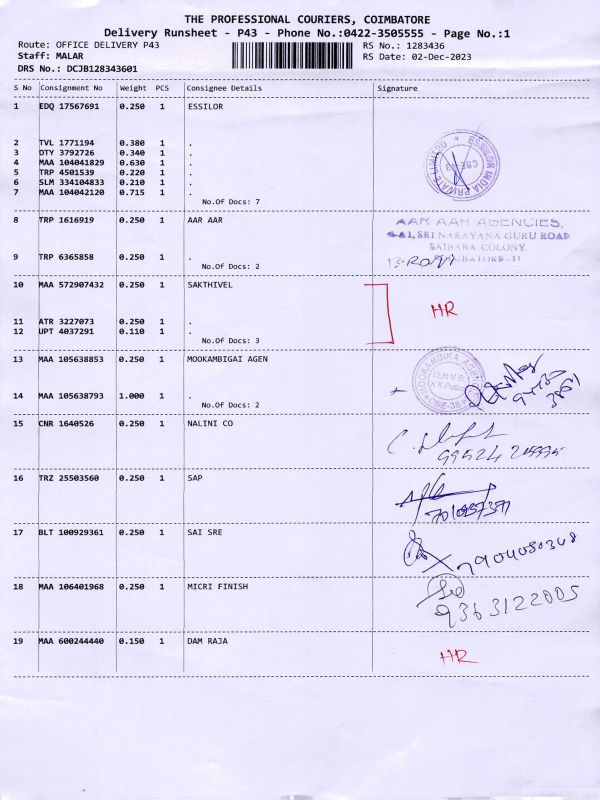 THE PROFESSIONAL COURIERS, COIMBATORE
Delivery Runsheet - P43 - Phone No.:0422-3505555 - Page No.:1
Route: OFFICE DELIVERY P43 RS No.: 1283436
Staff: MALAR RS Date: 02-Dec-2023
DRS No.: DCJB128343601
S No Consignment No Weight PCS Consignee Details Signature
1 EDQ 17567691 0.250 1 ESSILOR
2 TVL 1771194 0.380 1 .
3 DTY 3792726 0.340 1 .
4 MAA 104041829 0.630 1 .
5 TRP 4501539 0.220 1 .
6 SLM 334104833 0.210 1 .
7 MAA 104042120 0.715 1 .
No.Of Docs: 7
ESSILOR INDIA PRIVATE LIMITED
8 TRP 1616919 0.250 1 AAR AAR
AAR AAR AGENCIES,
SRI NARAYANA GURU ROAD
SAIBABA COLONY
9 TRP 6365858 0.250 1 .
No.Of Docs: 2
10 MAA 572907432 0.250 1 SAKTHIVEL
HR
11 ATR 3227073 0.250 1 .
12 UPT 4037291 0.110 1 .
No.Of Docs: 3
13 MAA 105638853 0.250 1 MOOKAMBIGAI AGEN
14 MAA 105638793 1.000 1 .
No.Of Docs: 2
15 CNR 1640526 0.250 1 NALINI CO
16 TRZ 25503560 0.250 1 SAP
17 BLT 100929361 0.250 1 SAI SRE
7904080348
18 MAA 106401968 0.250 1 MICRI FINISH
9363122005
19 MAA 600244440 0.150 1 DAM RAJA
HR